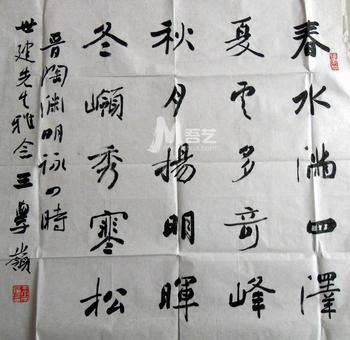 春水滿四澤
夏雲多奇峰
秋月揚明暉
冬嶺秀寒松
晋陶渊明詠四時
世建先生雅念王學嶺
吾艺